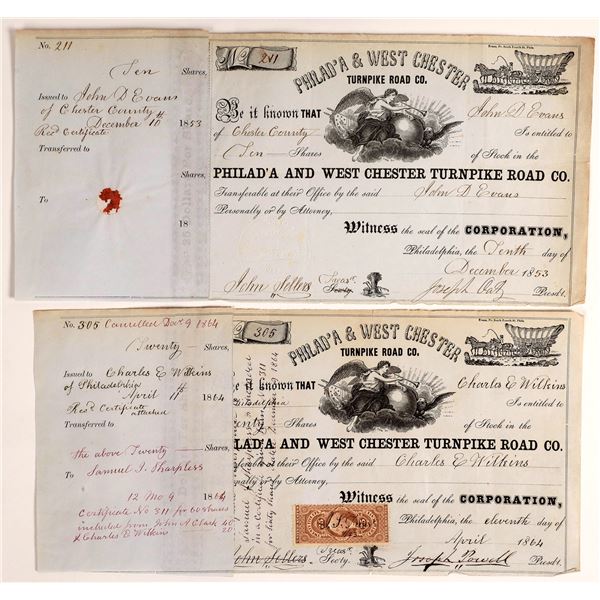 No. 211
Ten Shares,
Issued to John D Evans
of Chester County
December 10th 1853
Recd Certificate
Transferred to
Shares,
To
18
211
Evans, Pr. South Fourth St. Phila.
PHILAD'A & WEST CHESTER
TURNPIKE ROAD CO.
Be it known THAT John D. Evans
of Chester County Is entitled to
Ten Shares of Stock in the
PHILAD'A AND WEST CHESTER TURNPIKE ROAD CO.
Transferable at their Office by the said John D Evans
Personally or by Attorney,
Witness the seal of the CORPORATION,
Philadelphia, the Tenth day of
December 1853
John Sellers Treasr. Secty. Presdt.
No. 305 Cancelled Decr 9 1864
Twenty Shares,
Issued to Charles E Wilkins
of Philadelphia
April 11th 1864
Recd Certificate
attached
Transferred to
the above Twenty Shares,
To Samuel J. Sharpless
12 mo 9 1864
Certificate No 311 for 60 shares
included from John A Clark 40
& Charles E Wilkin 20
305
Evans, Pr. South Fourth St. Phila.
PHILAD'A & WEST CHESTER
TURNPIKE ROAD CO.
be it known THAT Charles E Wilkins
Philadelphia Is entitled to
Twenty Shares of Stock in the
PHILAD'A AND WEST CHESTER TURNPIKE ROAD CO.
Transferable at their Office by the said Charles E Wilkins
Personally or by Attorney,
Witness the seal of the CORPORATION,
Philadelphia, the eleventh day of
April 1864
John Sellers Treasr. Secty. Joseph Powell Presdt.